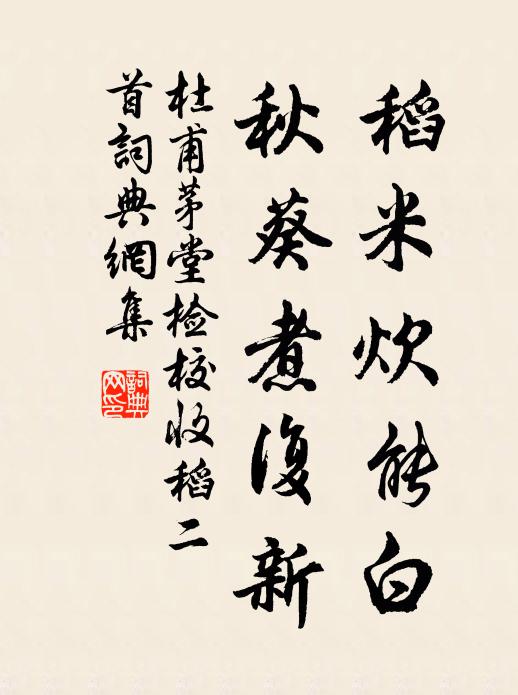 稻米炊能白
秋葵煮復新
杜甫茅堂检校收稻二
首詞典網集
詞典
网印